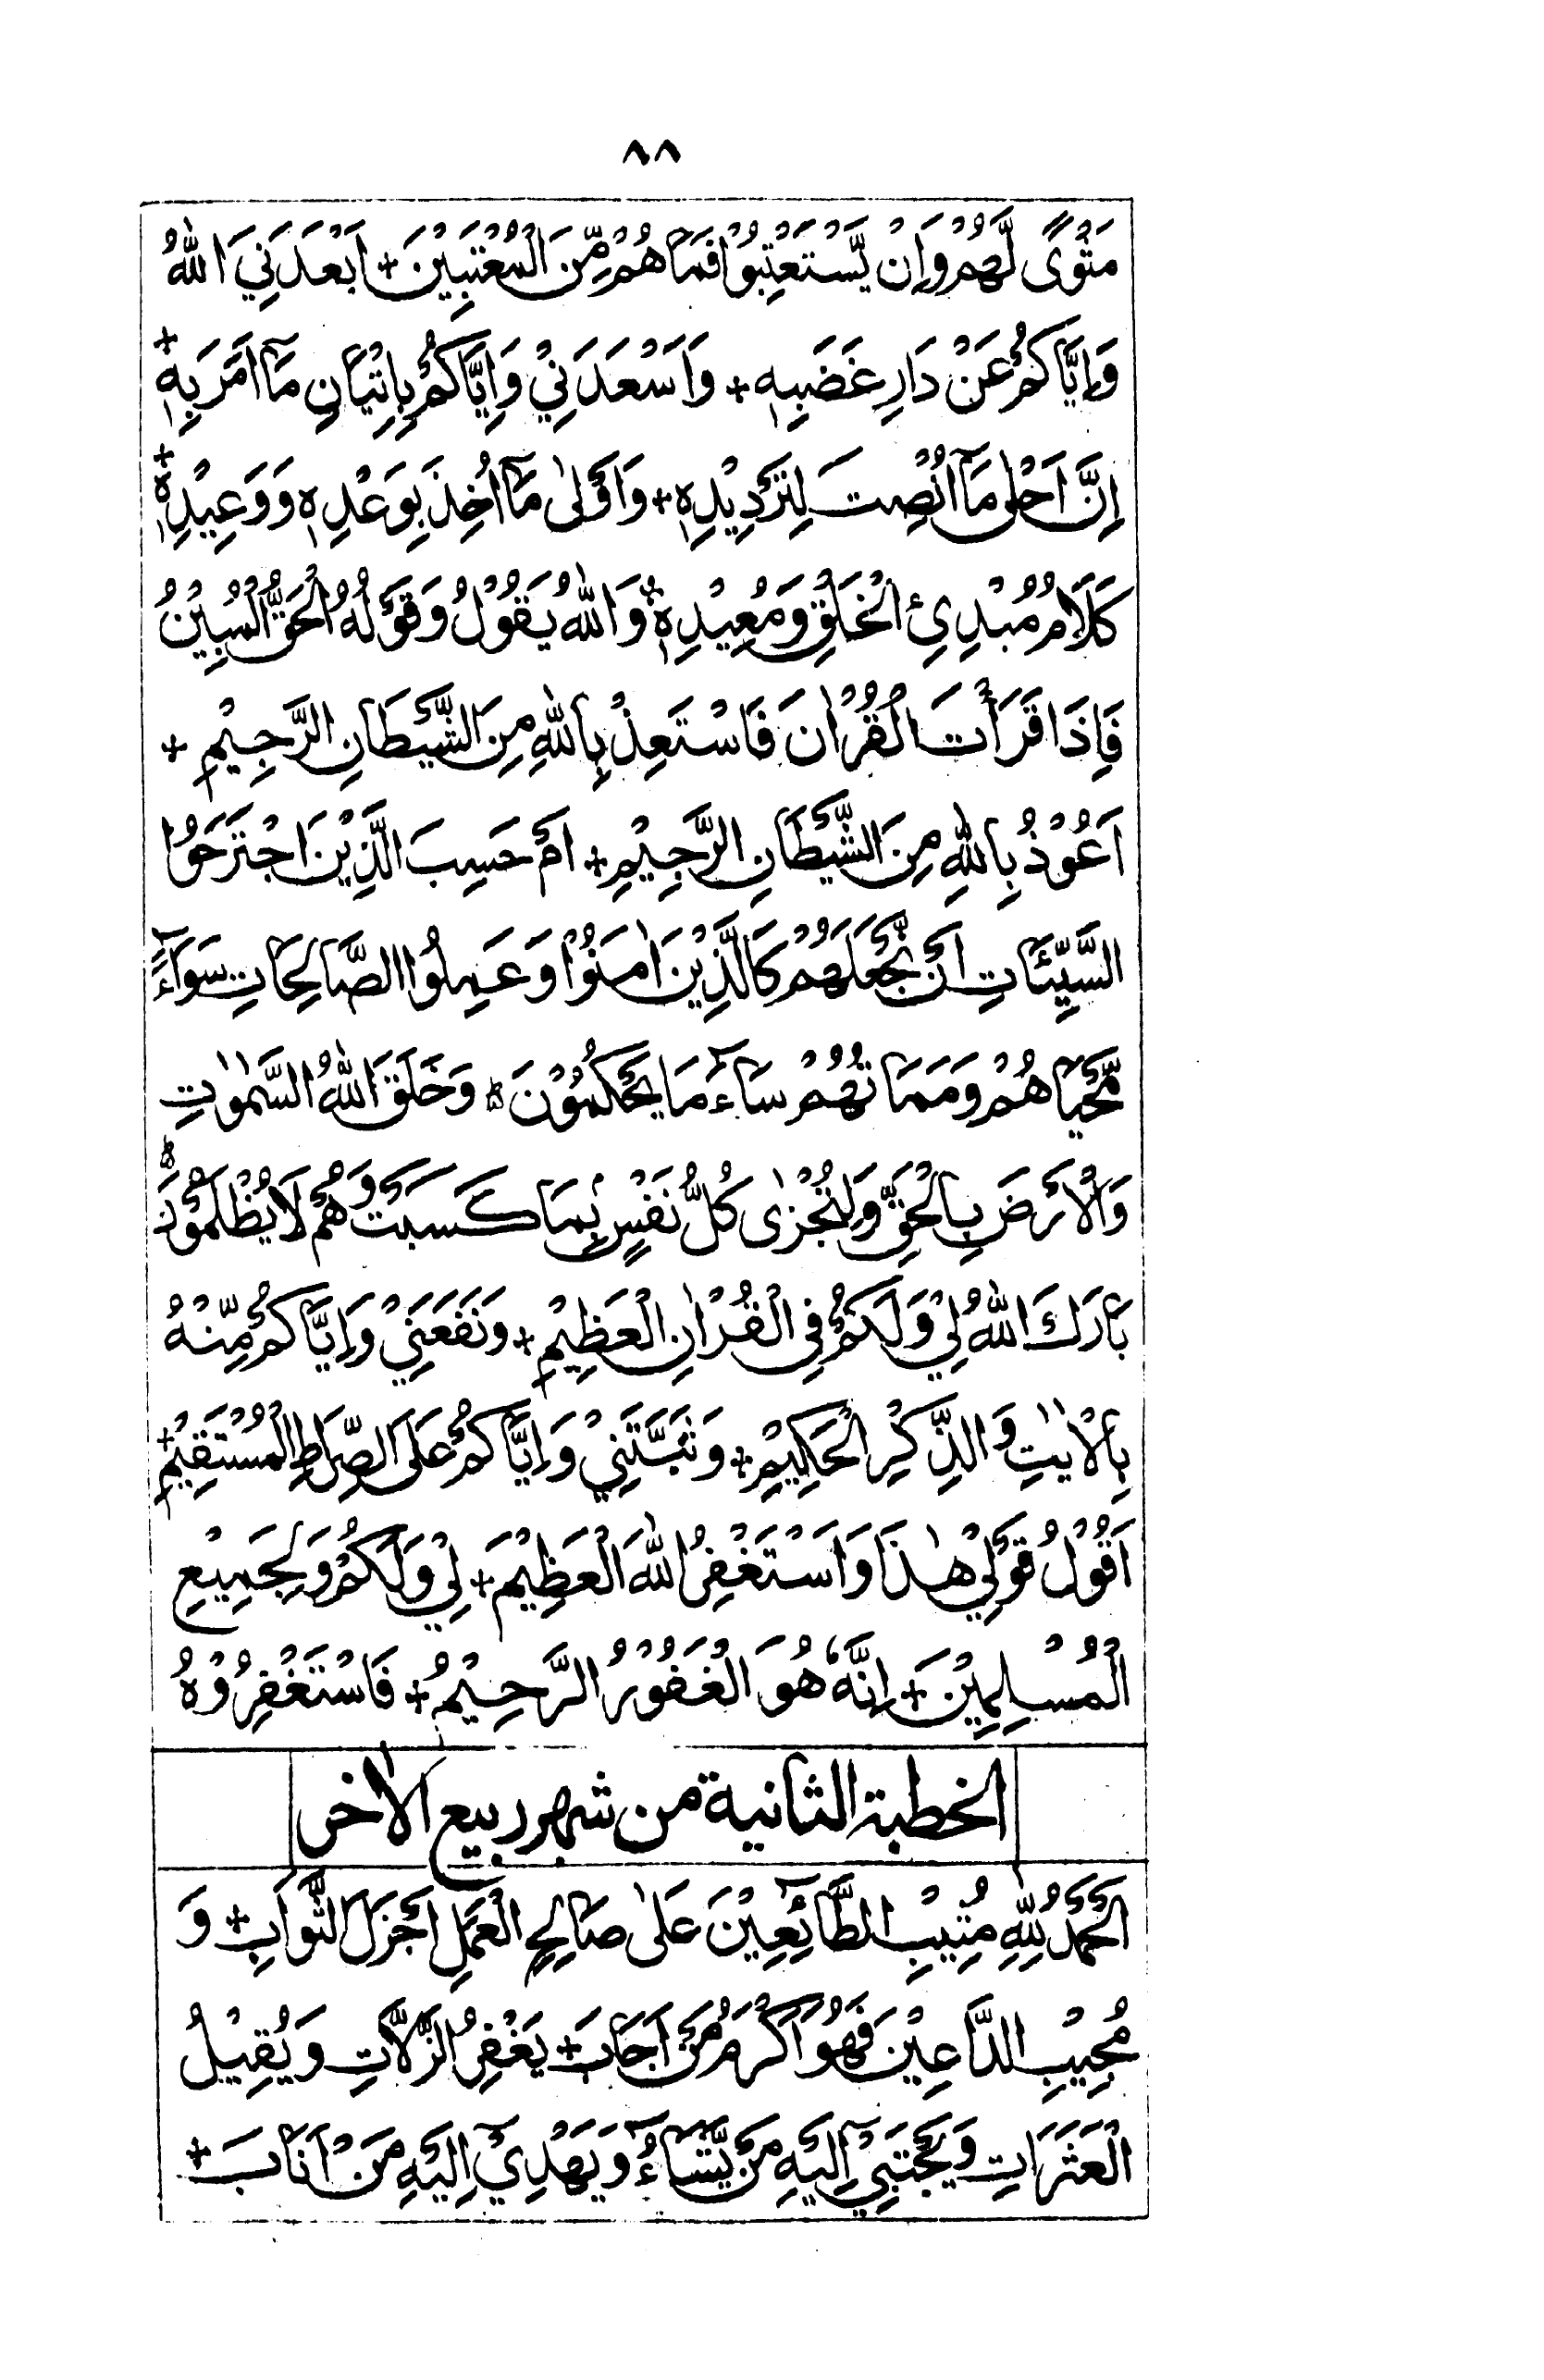 ٨٨
مَثْوًى لَّهُمْ وَاِنْ يَّسْتَعْتِبُوْا فَمَا هُمْ مِّنَ الْمُعْتَبِيْنَ + اَبْعَدَنِيَ اللّٰهُ
وَاِيَّاكُمْ عَنْ دَارِ غَضَبِهٖ + وَاَسْعَدَنِيْ وَاِيَّاكُمْ بِاِتْيَانِ مَآ اَمَرَ بِهٖ +
اِنَّ اَحْلٰى مَآ اُنْصِتَ لِتَرْدِيْدِهٖ + وَاَوْلٰى مَآ اُخِذَ بِوَعْدِهٖ وَوَعِيْدِهٖ +
كَلَامُ مُبْدِئِ الْخَلْقِ وَمُعِيْدِهٖ + وَاللّٰهُ يَقُوْلُ وَقَوْلُهُ الْحَقُّ الْمُبِيْنُ
فَاِذَا قَرَأْتَ الْقُرْاٰنَ فَاسْتَعِذْ بِاللّٰهِ مِنَ الشَّيْطَانِ الرَّجِيْمِ +
اَعُوْذُ بِاللّٰهِ مِنَ الشَّيْطَانِ الرَّجِيْمِ + اَمْ حَسِبَ الَّذِيْنَ اجْتَرَحُوا
السَّيِّئَاتِ اَنْ نَّجْعَلَهُمْ كَالَّذِيْنَ اٰمَنُوْا وَعَمِلُوا الصَّالِحَاتِ سَوَآءً
مَّحْيَاهُمْ وَمَمَاتُهُمْ سَآءَ مَا يَحْكُمُوْنَ ط وَخَلَقَ اللّٰهُ السَّمٰوٰتِ
وَالْاَرْضَ بِالْحَقِّ وَلِتُجْزٰى كُلُّ نَفْسٍ بِمَا كَسَبَتْ وَهُمْ لَا يُظْلَمُوْنَ ط
بَارَكَ اللّٰهُ لِيْ وَلَكُمْ فِي الْقُرْاٰنِ الْعَظِيْمِ + وَنَفَعَنِيْ وَاِيَّاكُمْ مِّنْهُ
بِالْاٰيٰتِ وَالذِّكْرِ الْحَكِيْمِ + وَثَبَّتَنِيْ وَاِيَّاكُمْ عَلَى الصِّرَاطِ الْمُسْتَقِيْمِ +
اَقُوْلُ قَوْلِيْ هٰذَا وَاَسْتَغْفِرُ اللّٰهَ الْعَظِيْمَ + لِيْ وَلَكُمْ وَلِجَمِيْعِ
الْمُسْلِمِيْنَ + اِنَّهٗ هُوَ الْغَفُوْرُ الرَّحِيْمُ + فَاسْتَغْفِرُوْهُ
الخطبة الثانية من شهر ربيع الاٰخر
اَلْحَمْدُ لِلّٰهِ مُثِيْبِ الطَّآئِعِيْنَ عَلٰى صَالِحِ الْعَمَلِ اَجْزَلَ الثَّوَابِ + وَ
مُجِيْبِ الدَّاعِيْنَ فَهُوَ اَكْرَمُ مَنْ اَجَابَ + يَغْفِرُ الزَّلَّاتِ وَيُقِيْلُ
الْعَثَرَاتِ وَيَجْتَبِيْٓ اِلَيْهِ مَنْ يَّشَآءُ وَيَهْدِيْٓ اِلَيْهِ مَنْ اَنَابَ +